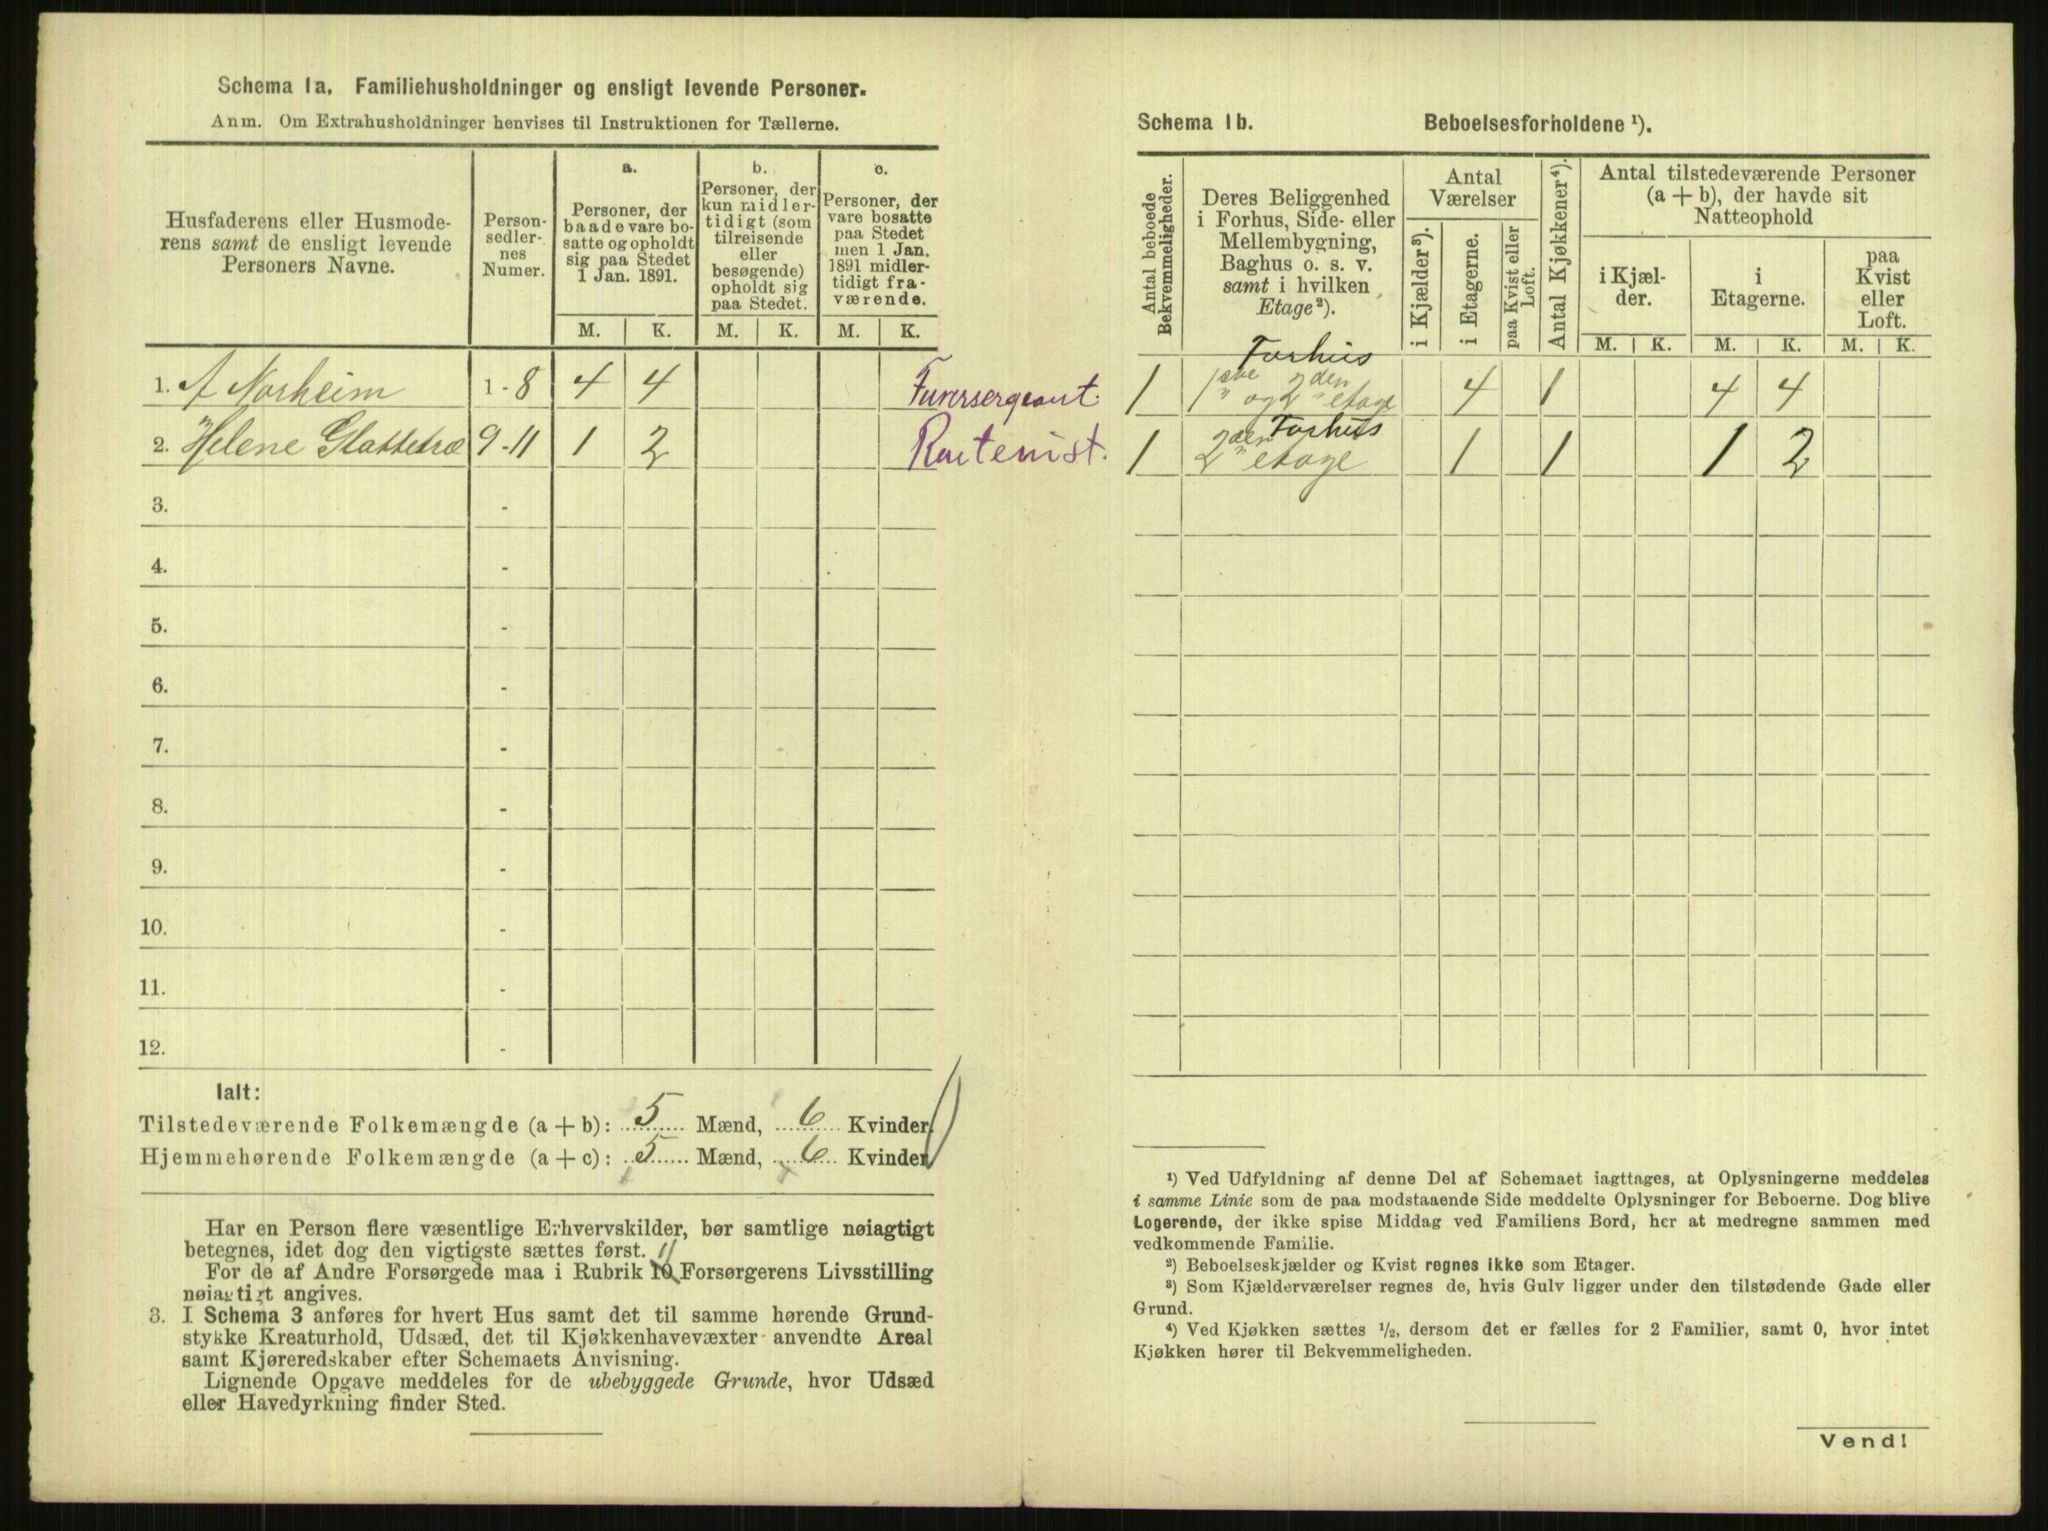 Schema 1a. Familiehusholdninger og ensligt levende Personer.
Anm. Om Extrahusholdninger henvises til Instruktionen for Tællerne.
Husfaderens eller Husmode-
rens samt de ensligt levende
Personers Navne.
Person-
sedler-
nes
Numer.
a.
Personer, der
baade vare bo-
satte og opholdt
sig paa Stedet
1 Jan. 1891.
b.
Personer, der
kun midler-
tidigt (som
tilreisende
eller
besøgende)
opholdt sig
paa Stedet.
c.
Personer, der
vare bosatte
paa Stedet
men 1 Jan.
1891 midler-
tidigt fra-
værende.
M. K. M. K. M. K.
1. A Norheim 1-8 4 4 Furersergeant.
2. Helene Glattetræ 9-11 1 2 Rentenist.
3. -
4. -
5. -
6. -
7. -
8. -
9. -
10. -
11. -
12. -
Ialt:
Tilstedeværende Folkemængde (a + b): 5 Mænd, 6 Kvinder.
Hjemmehørende Folkemængde (a + c): 5 Mænd, 6 Kvinder.
Har en Person flere væsentlige Erhvervskilder, bør samtlige nøiagtigt
betegnes, idet dog den vigtigste sættes først. 11
For de af Andre Forsørgede maa i Rubrik 10 Forsørgerens Livsstilling
nøiagtigt angives.
3. I Schema 3 anføres for hvert Hus samt det til samme hørende Grund-
stykke Kreaturhold, Udsæd, det til Kjøkkenhavevæxter anvendte Areal
samt Kjøreredskaber efter Schemaets Anvisning.
Lignende Opgave meddeles for de ubebyggede Grunde, hvor Udsæd
eller Havedyrkning finder Sted.
Schema 1b. Beboelsesforholdene ¹).
Antal beboede
Bekvemmeligheder.
Deres Beliggenhed
i Forhus, Side- eller
Mellembygning,
Baghus o. s. v.
samt i hvilken
Etage ²).
Antal
Værelser
i Kjælder ³).
i Etagerne.
paa Kvist eller
Loft.
Antal Kjøkkener ⁴).
Antal tilstedeværende Personer
(a + b), der havde sit
Natteophold
i Kjæl-
der.
i
Etagerne.
paa
Kvist
eller
Loft.
M. K. M. K. M. K.
Forhus
1 1ste og 2den etage 4 1 4 4
Forhus
1 2den etage 1 1 1 2
¹) Ved Udfyldning af denne Del af Schemaet iagttages, at Oplysningerne meddeles
i samme Linie som de paa modstaaende Side meddelte Oplysninger for Beboerne. Dog blive
Logerende, der ikke spise Middag ved Familiens Bord, her at medregne sammen med
vedkommende Familie.
²) Beboelseskjælder og Kvist regnes ikke som Etager.
³) Som Kjælderværelser regnes de, hvis Gulv ligger under den tilstødende Gade eller
Grund.
⁴) Ved Kjøkken sættes ½, dersom det er fælles for 2 Familier, samt 0, hvor intet
Kjøkken hører til Bekvemmeligheden.
Vend!